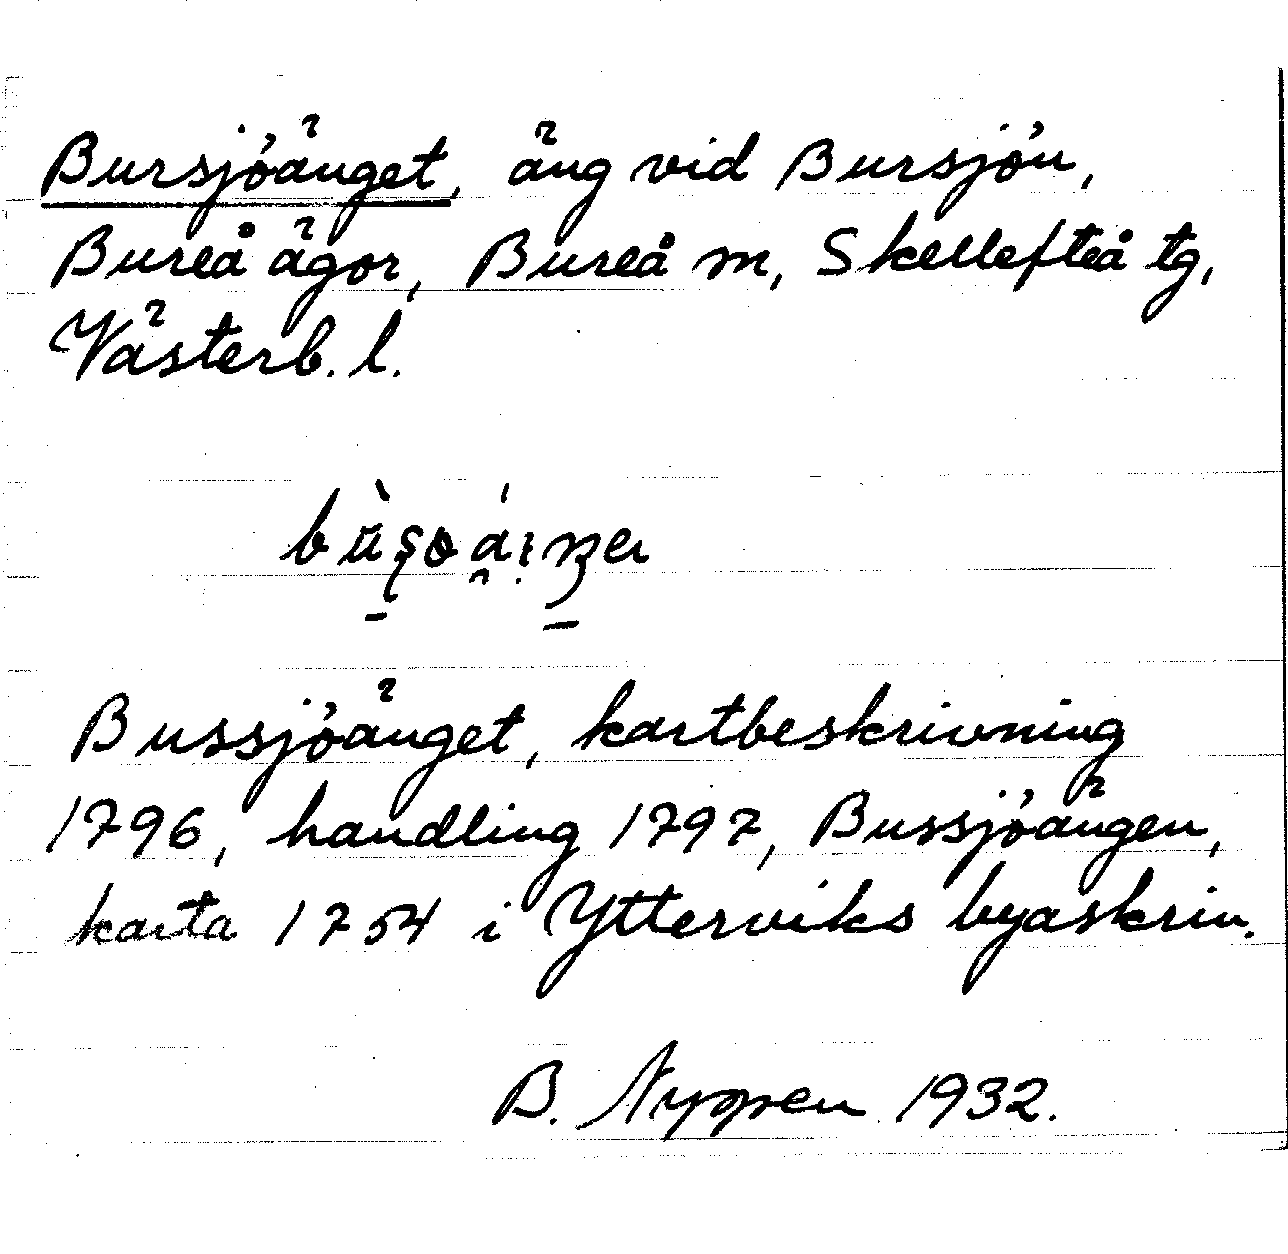 Bursjöänget, äng vid Bursjön,
Bureå ägor, Bureå m, Skellefteå tg,
Västerb. l.
Bussjöänget, kartbeskrivning
1796, handling 1797, Bussjöängen,
karta 1754 i Ytterviks byaskriv.
B. Nygren 1932.